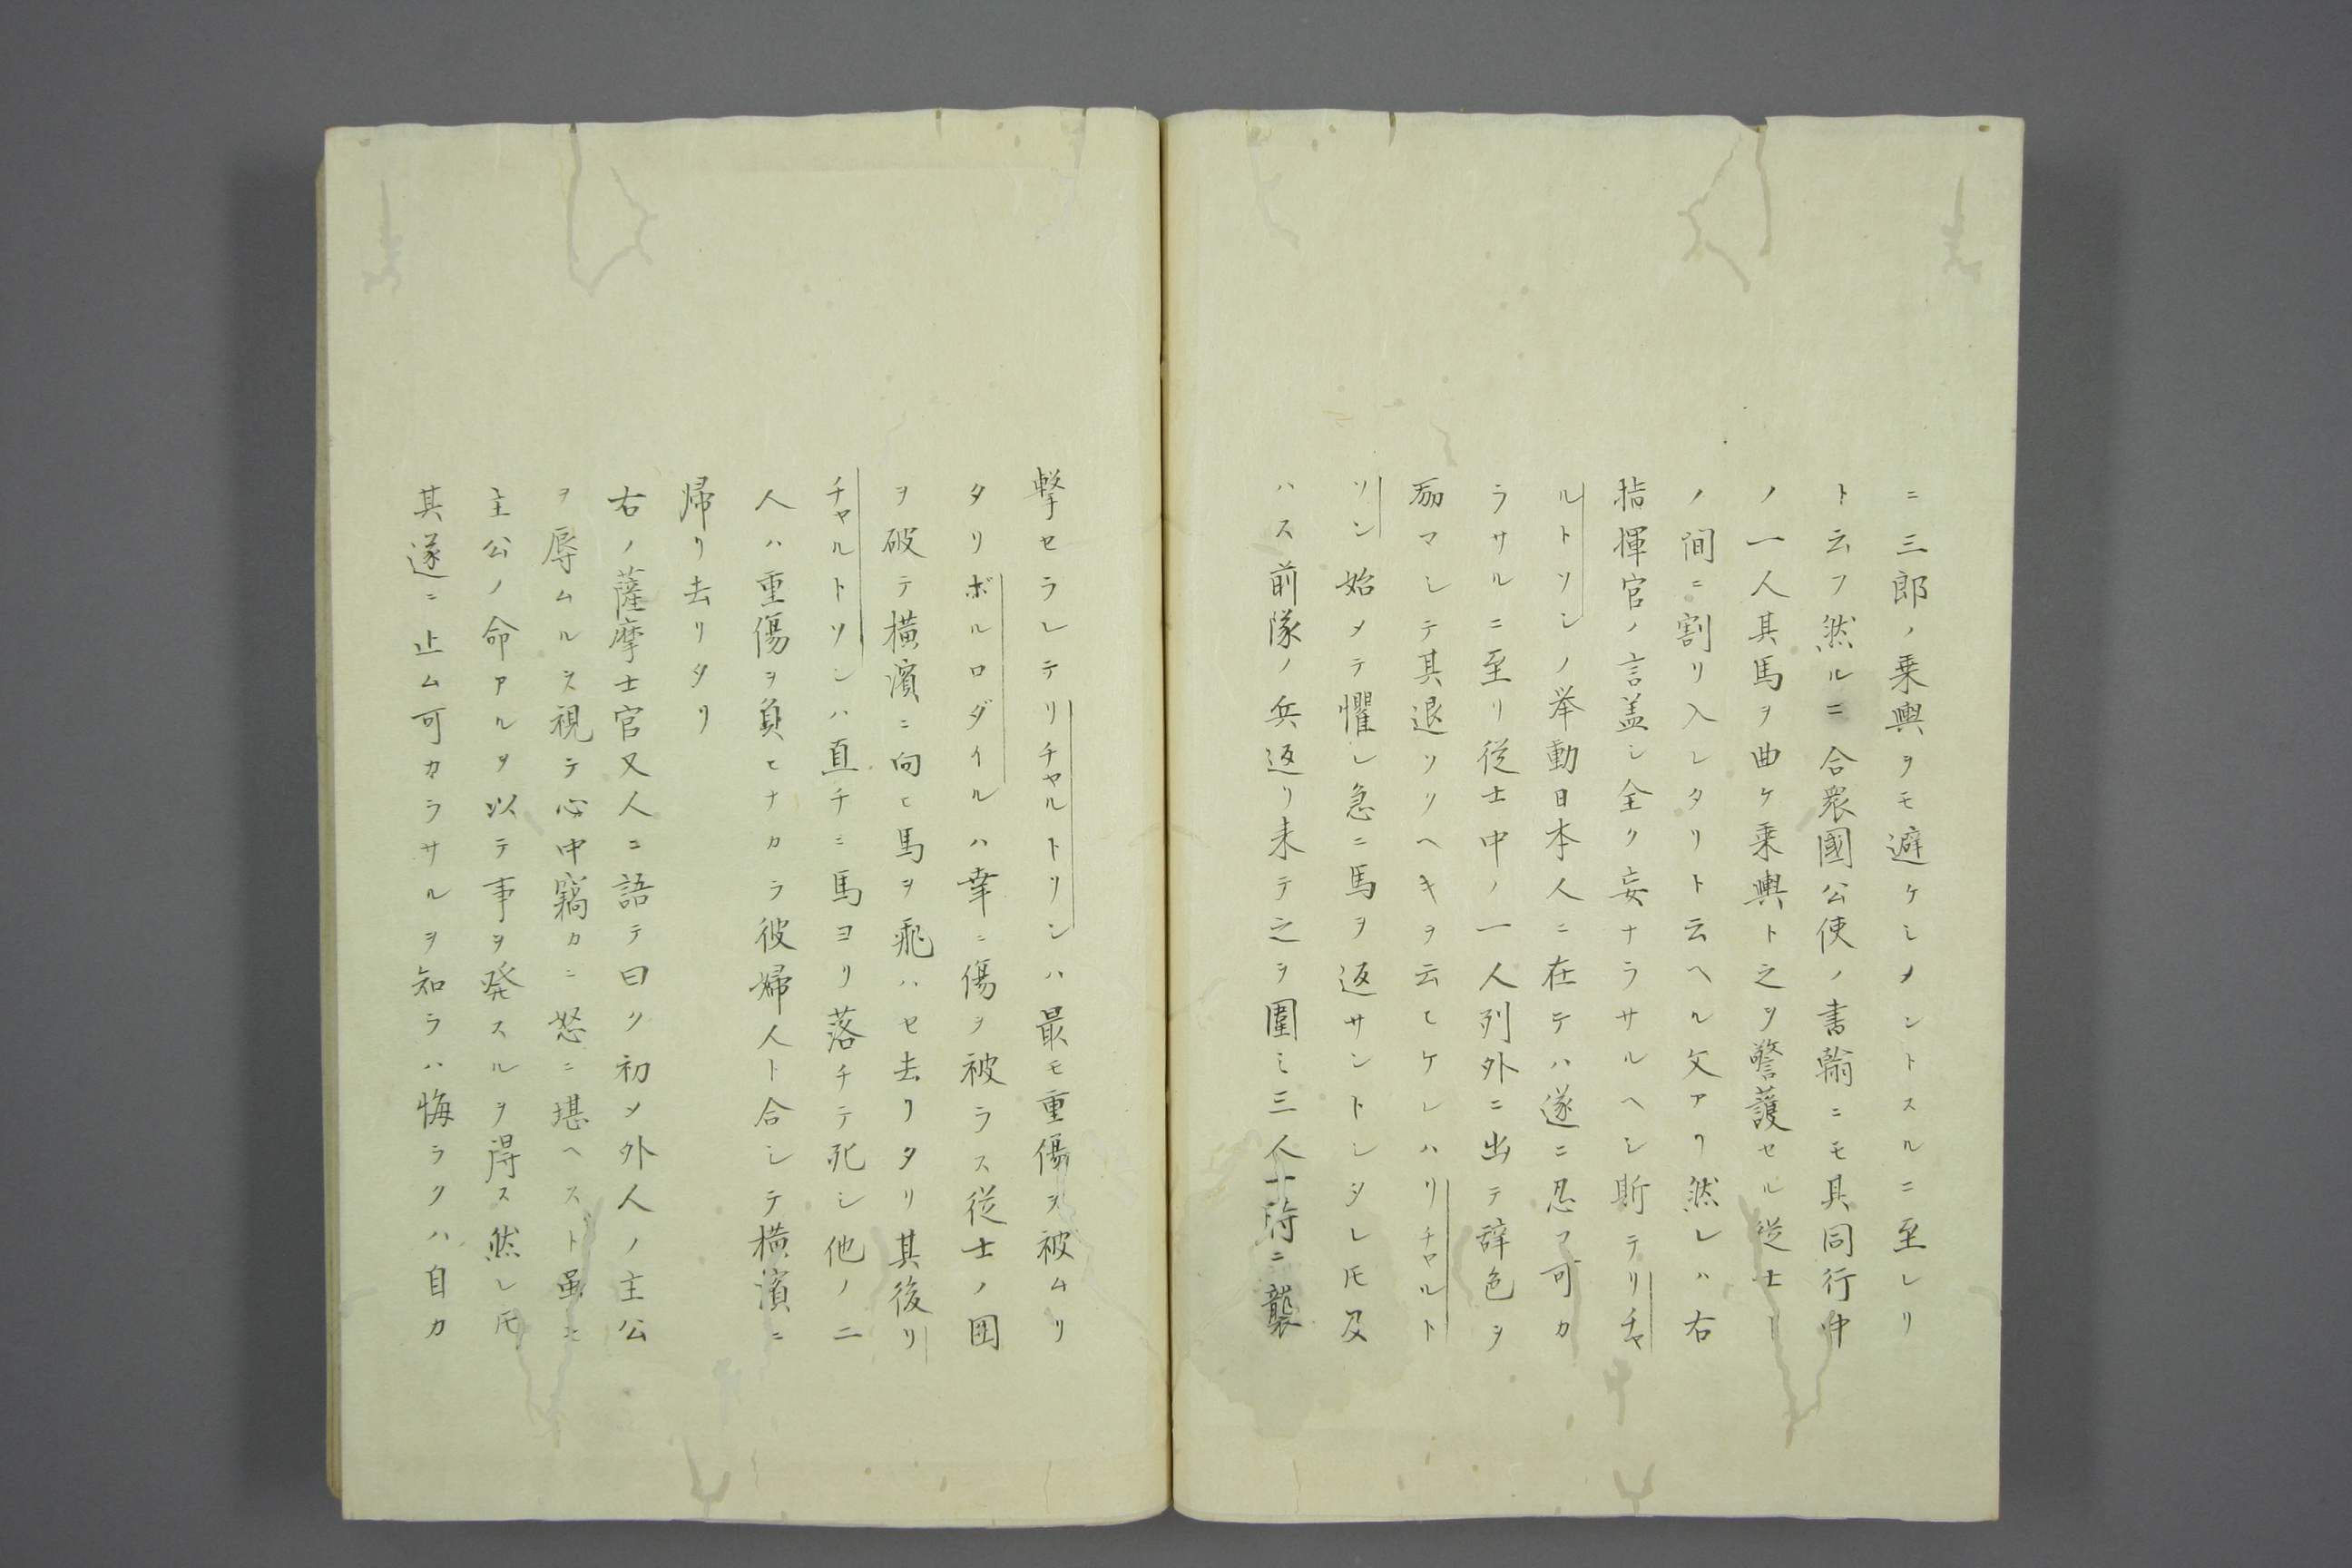 ニ三郎ノ乗輿ヲモ避ケシメントスルニ至レリ
ト云フ然ルニ合衆國公使ノ書翰ニモ具同行中
ノ一人其馬ヲ曲ケ乗輿ト之ヲ警護セル従士
ノ間ニ割リ入レタリト云ヘル文アリ然レハ右
指揮官ノ言盖シ全ク妄ナラサルヘシ斯テリチャ
ルトソンノ挙動日本人ニ在テハ遂ニ忍フ可カ
ラサルニ至リ従士中ノ一人列外ニ出テ辞色ヲ
励マシテ其退ソクヘキヲ云ヒケレハリチャルト
ソン始メテ懼レ急ニ馬ヲ返サントシタレ𪜈及
ハス前隊ノ兵返リ来テ之ヲ圍ミ三人一時ニ襲
撃セラレテリチャルトソンハ最モ重傷ヲ被ムリ
タリボルロダイルハ幸ニ傷ヲ被ラス従士ノ囲
ヲ破テ横濱ニ向ヒ馬ヲ飛ハセ去リタリ其後リ
チャルトソンハ直チニ馬ヨリ落チテ死シ他ノ二
人ハ重傷ヲ負ヒナカラ彼婦人ト合シテ横濱ニ
帰リ去リタリ
右ノ薩摩士官又人ニ語テ曰ク初メ外人ノ主公
ヲ辱ムルヲ視テ心中竊カニ怒ニ堪ヘスト虽ニ
主公ノ命アルヲ以テ事ヲ発スルヲ得ス然レ𪜈
其遂ニ止ム可カラサルヲ知ラハ悔ラクハ自カ